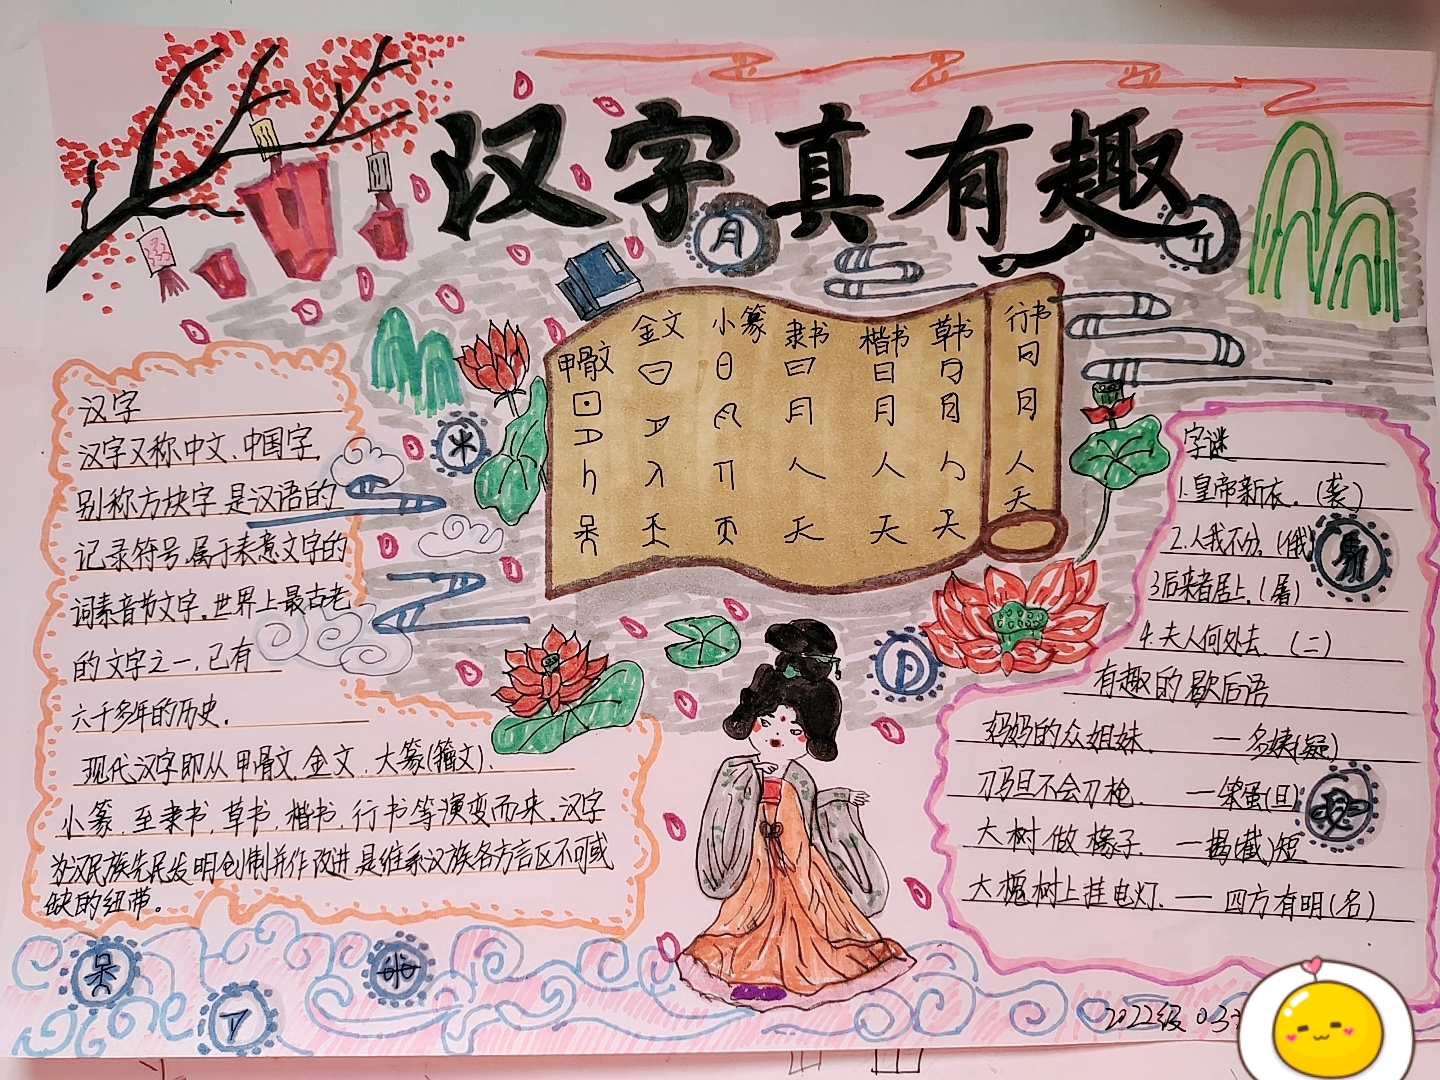 汉字真有趣
月
甲骨文 金文 小篆 隶书 楷书 草书 行书
日 日 日 日 日 日 日
月 月 月 月 月 月 月
人 人 人 人 人 人 人
天 天 天 天 天 天 天
汉字
汉字又称中文、中国字,
别称方块字,是汉语的
记录符号,属于表意文字的
词素音节文字。世界上最古老
的文字之一,已有
六千多年的历史。
现代汉字即从甲骨文、金文、大篆(籀文)、
小篆,至隶书,草书,楷书,行书等演变而来。汉字
为汉民族先民发明创制并作改进,是维系汉族各方言区不可或
缺的纽带。
字谜
1.皇帝新衣。(袭)
2.人我不分。(俄)
3后来者居上。(屠)
4.夫人何处去。(二)
有趣的歇后语
妈妈的众姐妹. —多姨(疑)
刀马旦不会刀枪. —笨蛋(旦)
大树做椽子. —揭(截)短
大槐树上挂电灯. — 四方有明(名)
2022级 03